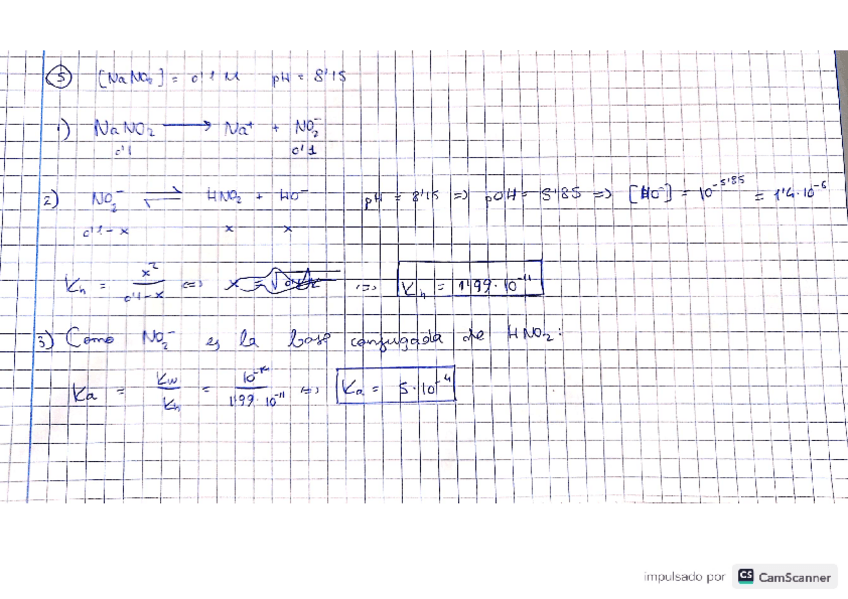 5 [NaNO2] = 0'1 M pH = 8'15
1) NaNO2 → Na+ + NO2-
0'1 0'1
2) NO2- ⇌ HNO2 + HO- pH = 8'15 => pOH = 5'85 => [HO-] = 10^-5'85 = 1'4·10^-6
0'1-x x x
Kh = x^2 / 0'1-x <=> => Kh = 1'99·10^-11
3) Como NO2- es la base conjugada de HNO2:
Ka = Kw / Kh = 10^-14 / 1'99·10^-11 => Ka = 5·10^-4
impulsado por CS CamScanner